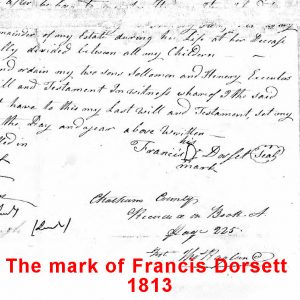 remainder of my Estate during her Life at her Decease
divided between all my Children
and ordain my two sons Solloman and Hennery Executors
ill and Testament In witness whareof I the said
have to this my Last Will and Testament, set my
the Day and year above written
his
Francis D Dorsett Seal
mark
Chatham County
Recorded in Book A
Page 225.
The mark of Francis Dorsett
1813